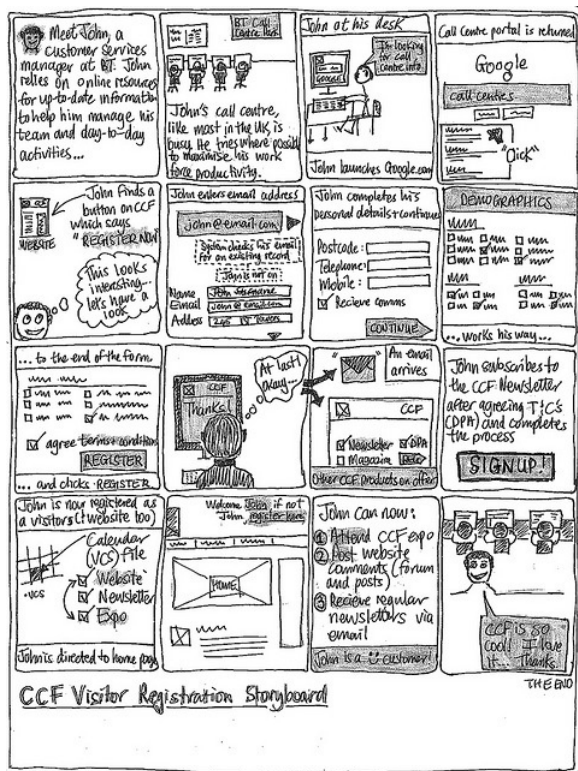 Meet John, a
customer services
manager at BT. John
relies on online resources
for up-to-date information
to help him manage his
team and day-to-day
activities...
BT Call
Centre
John's call centre,
like most in the UK, is
busy. He tries where possible
to maximise his work
force productivity.
John at his desk
I'm looking
for call
centre info
GOOGLE
John launches Google.com
Call Centre portal is returned
Google
call centres
"Click"
WEBSITE
John finds a
button on CCF
which says
"REGISTER NOW
This looks
interesting...
let's have a
look
John enters email address
john@email.com
System checks his email
for an existing record
John is not on
Name John
Email john@email.com
Address
John completes his
personal details + continues
Postcode:
Telephone:
Mobile:
Recieve comms
CONTINUE
DEMOGRAPHICS
...works his way...
... to the end of the form.
agree terms + conditions
REGISTER
... and clicks REGISTER
CCF
Thanks!
At last!
okay...
An email
arrives
CCF
Newsletter
DPA
Magazine
Other CCF products on offer
John subscribes to
the CCF Newsletter
after agreeing T+C's
(DPA) and completes
the process
SIGNUP!
John is now registered as
a visitors (+ website too)
Calendar
(VCS) file
.vcs
Website
Newsletter
Expo
John is directed to home page
Welcome John if not
John, register here
HOME
John can now:
1 Attend CCF expo
2 Post website
comments (forum
and posts)
3 Recieve regular
newsletters via
email
John is a customer!
CCF is so
cool! I love
it... Thanks.
THE END
CCF Visitor Registration Storyboard